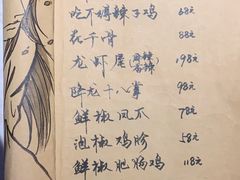 吃不够辣子鸡 68元
花千骨 88元
龙虾尾(麻辣 香辣) 198元
卧龙十八掌 98元
鲜椒凤爪 78元
泡椒鸡胗 58元
鲜椒肥肠鸡 118元